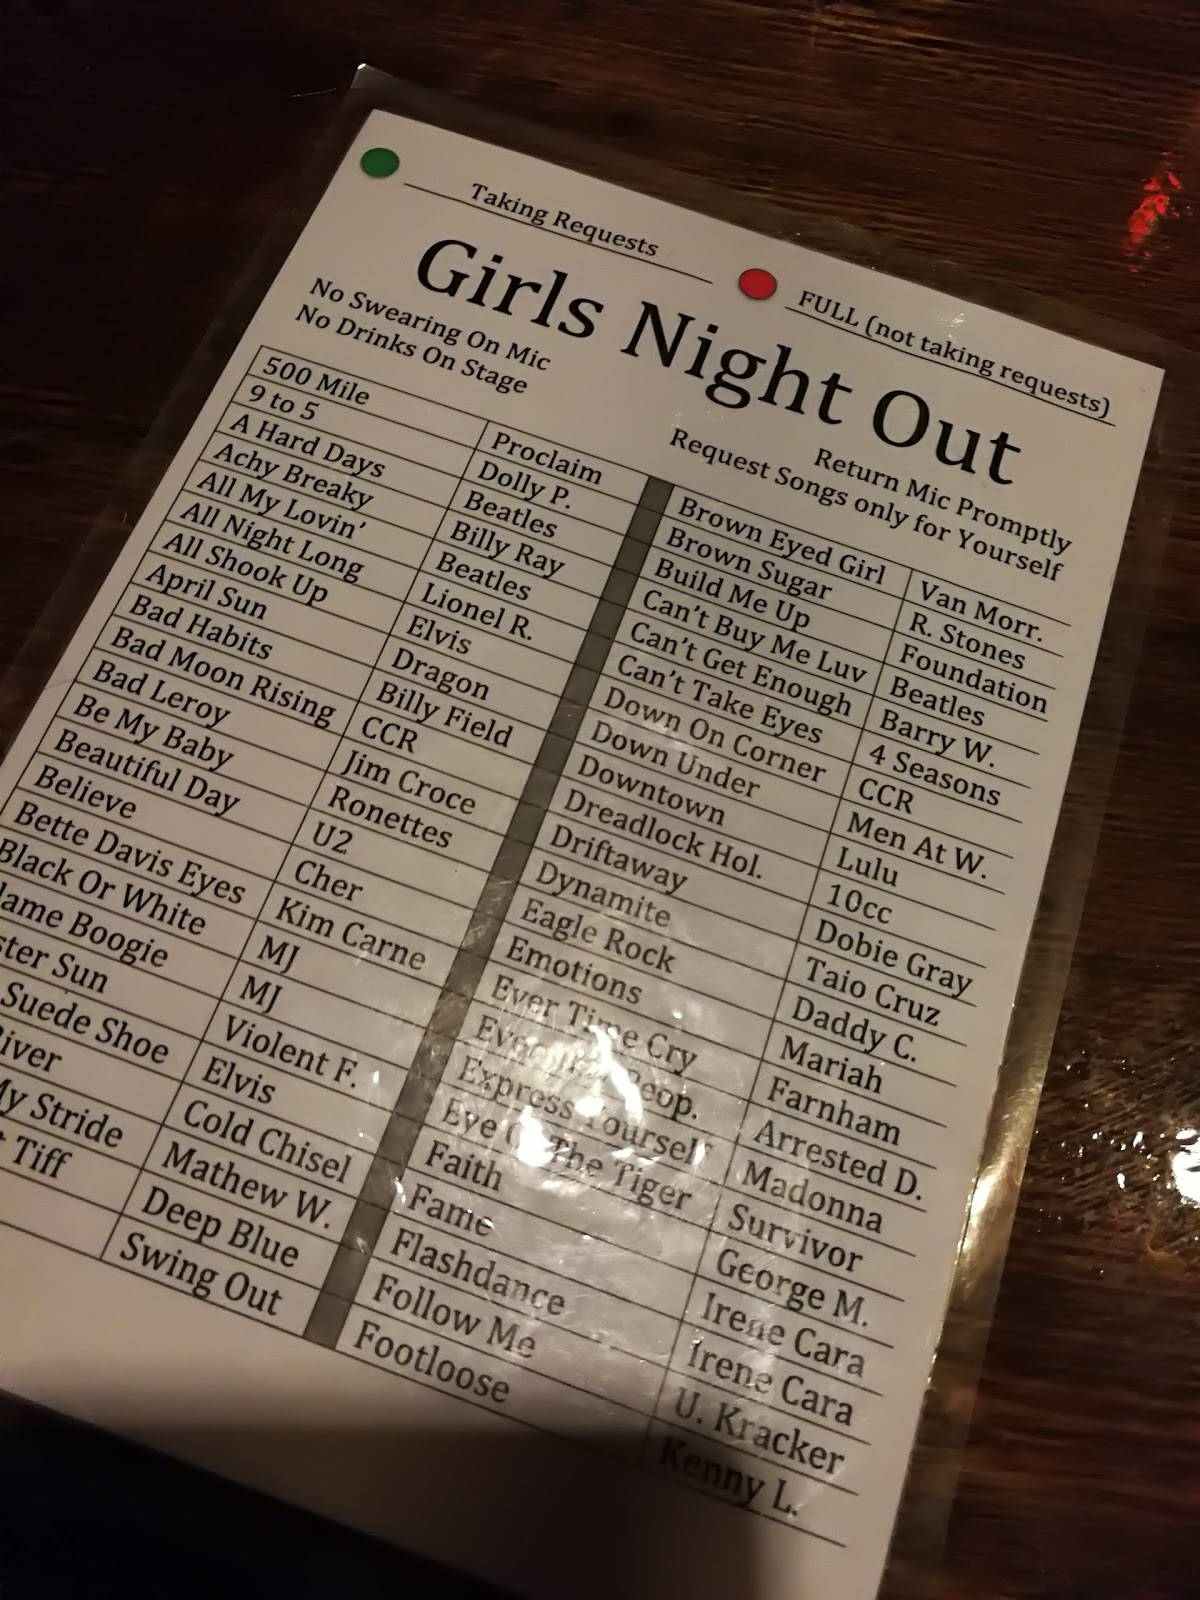 Taking Requests
FULL (not taking requests)
Girls Night Out
No Swearing On Mic
No Drinks On Stage
Return Mic Promptly
Request Songs only for Yourself
500 Mile Proclaim
9 to 5 Dolly P.
A Hard Days Beatles
Achy Breaky Billy Ray
All My Lovin' Beatles
All Night Long Lionel R.
All Shook Up Elvis
April Sun Dragon
Bad Habits Billy Field
Bad Moon Rising CCR
Bad Leroy Jim Croce
Be My Baby Ronettes
Beautiful Day U2
Believe Cher
Bette Davis Eyes Kim Carne
Black Or White MJ
lame Boogie MJ
ster Sun Violent F.
Suede Shoe Elvis
River Cold Chisel
My Stride Mathew W.
Tiff Deep Blue
Swing Out
Brown Eyed Girl Van Morr.
Brown Sugar R. Stones
Build Me Up Foundation
Can't Buy Me Luv Beatles
Can't Get Enough Barry W.
Can't Take Eyes 4 Seasons
Down On Corner CCR
Down Under Men At W.
Downtown Lulu
Dreadlock Hol. 10cc
Driftaway Dobie Gray
Dynamite Taio Cruz
Eagle Rock Daddy C.
Emotions Mariah
Ever Time Cry Farnham
Peop. Arrested D.
Express Yourself Madonna
Eye Of The Tiger Survivor
Faith George M.
Fame Irene Cara
Flashdance Irene Cara
Follow Me U. Kracker
Footloose Kenny L.